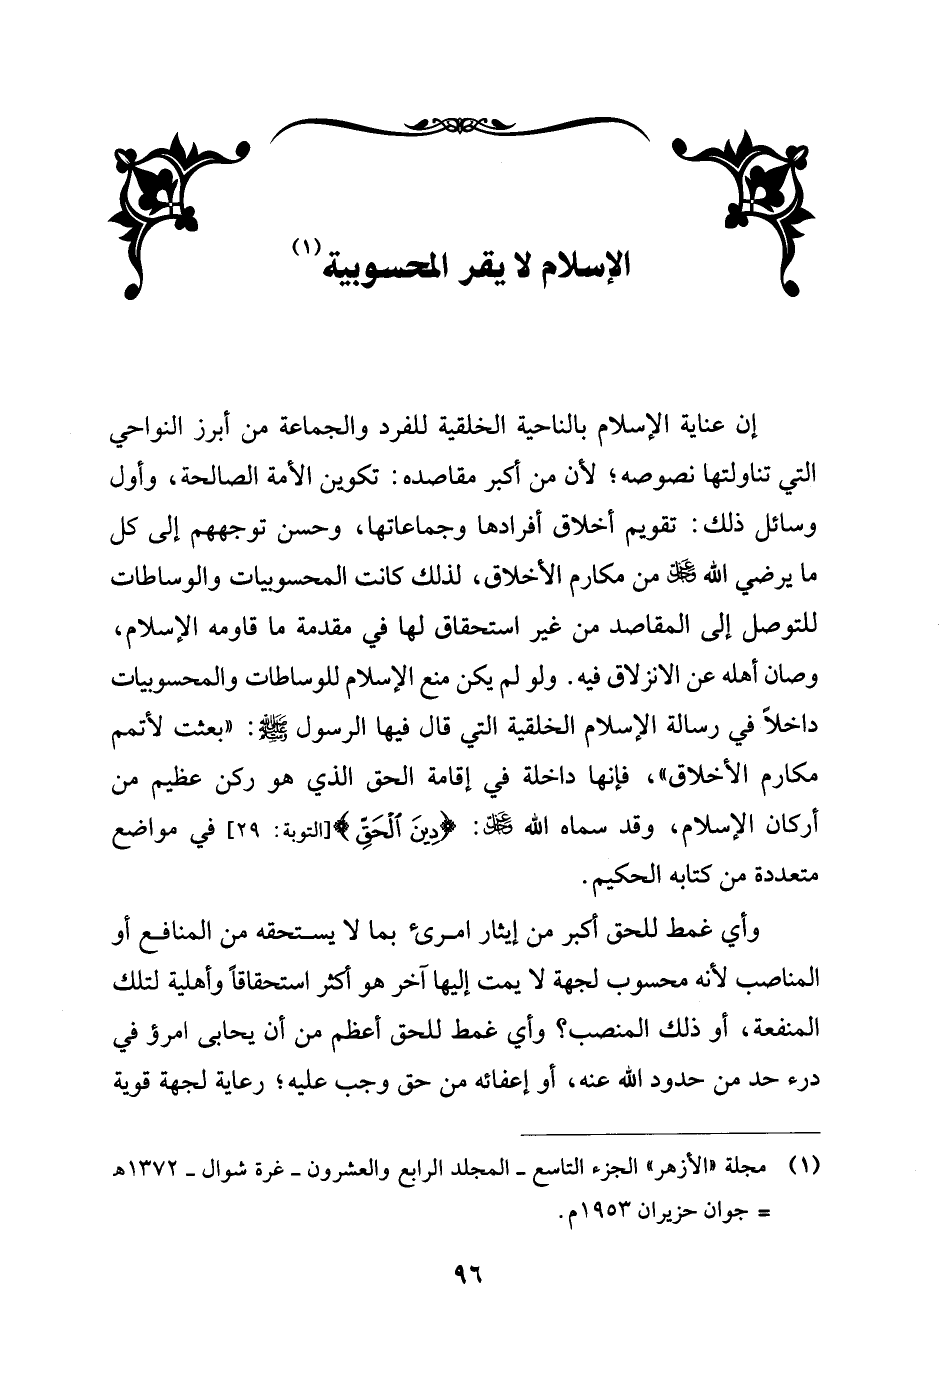 الإسلام لا يقر المحسوبية(١)
إن عناية الإسلام بالناحية الخلقية للفرد والجماعة من أبرز النواحي
التي تناولتها نصوصه؛ لأن من أكبر مقاصده: تكوين الأمة الصالحة، وأول
وسائل ذلك: تقويم أخلاق أفرادها وجماعاتها، وحسن توجههم إلى كل
ما يرضي الله ﷻ من مكارم الأخلاق، لذلك كانت المحسوبيات والوساطات
للتوصل إلى المقاصد من غير استحقاق لها في مقدمة ما قاومه الإسلام،
وصان أهله عن الانزلاق فيه. ولو لم يكن منع الإسلام للوساطات والمحسوبيات
داخلاً في رسالة الإسلام الخلقية التي قال فيها الرسول ﷺ: «بعثت لأتمم
مكارم الأخلاق»، فإنها داخلة في إقامة الحق الذي هو ركن عظيم من
أركان الإسلام، وقد سماه الله ﷻ: ﴿دِينَ ٱلْحَقِّ﴾[التوبة: ٢٩] في مواضع
متعددة من كتابه الحكيم.
وأي غمط للحق أكبر من إيثار امرئ بما لا يستحقه من المنافع أو
المناصب لأنه محسوب لجهة لا يمت إليها آخر هو أكثر استحقاقاً وأهلية لتلك
المنفعة، أو ذلك المنصب؟ وأي غمط للحق أعظم من أن يحابى امرؤ في
درء حد من حدود الله عنه، أو إعفائه من حق وجب عليه؛ رعاية لجهة قوية
(١) مجلة «الأزهر» الجزء التاسع ـ المجلد الرابع والعشرون ـ غرة شوال ـ ١٣٧٢هـ
= جوان حزيران ١٩٥٣م.
٩٦